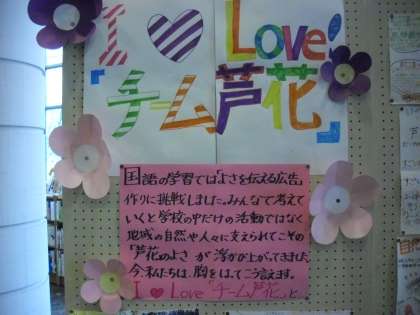 I ♥ Love!
『チーム芦花』
国語の学習では「よさを伝える広告」
作りに挑戦しました。みんなで考えて
いくと学校の中だけの活動ではなく
地域の自然や人々に支えられてこその
「芦花のよさ」が浮かび上がってきました。
今、私たちは、胸をはってこう言えます。
I ♥ Love 『チーム芦花』と